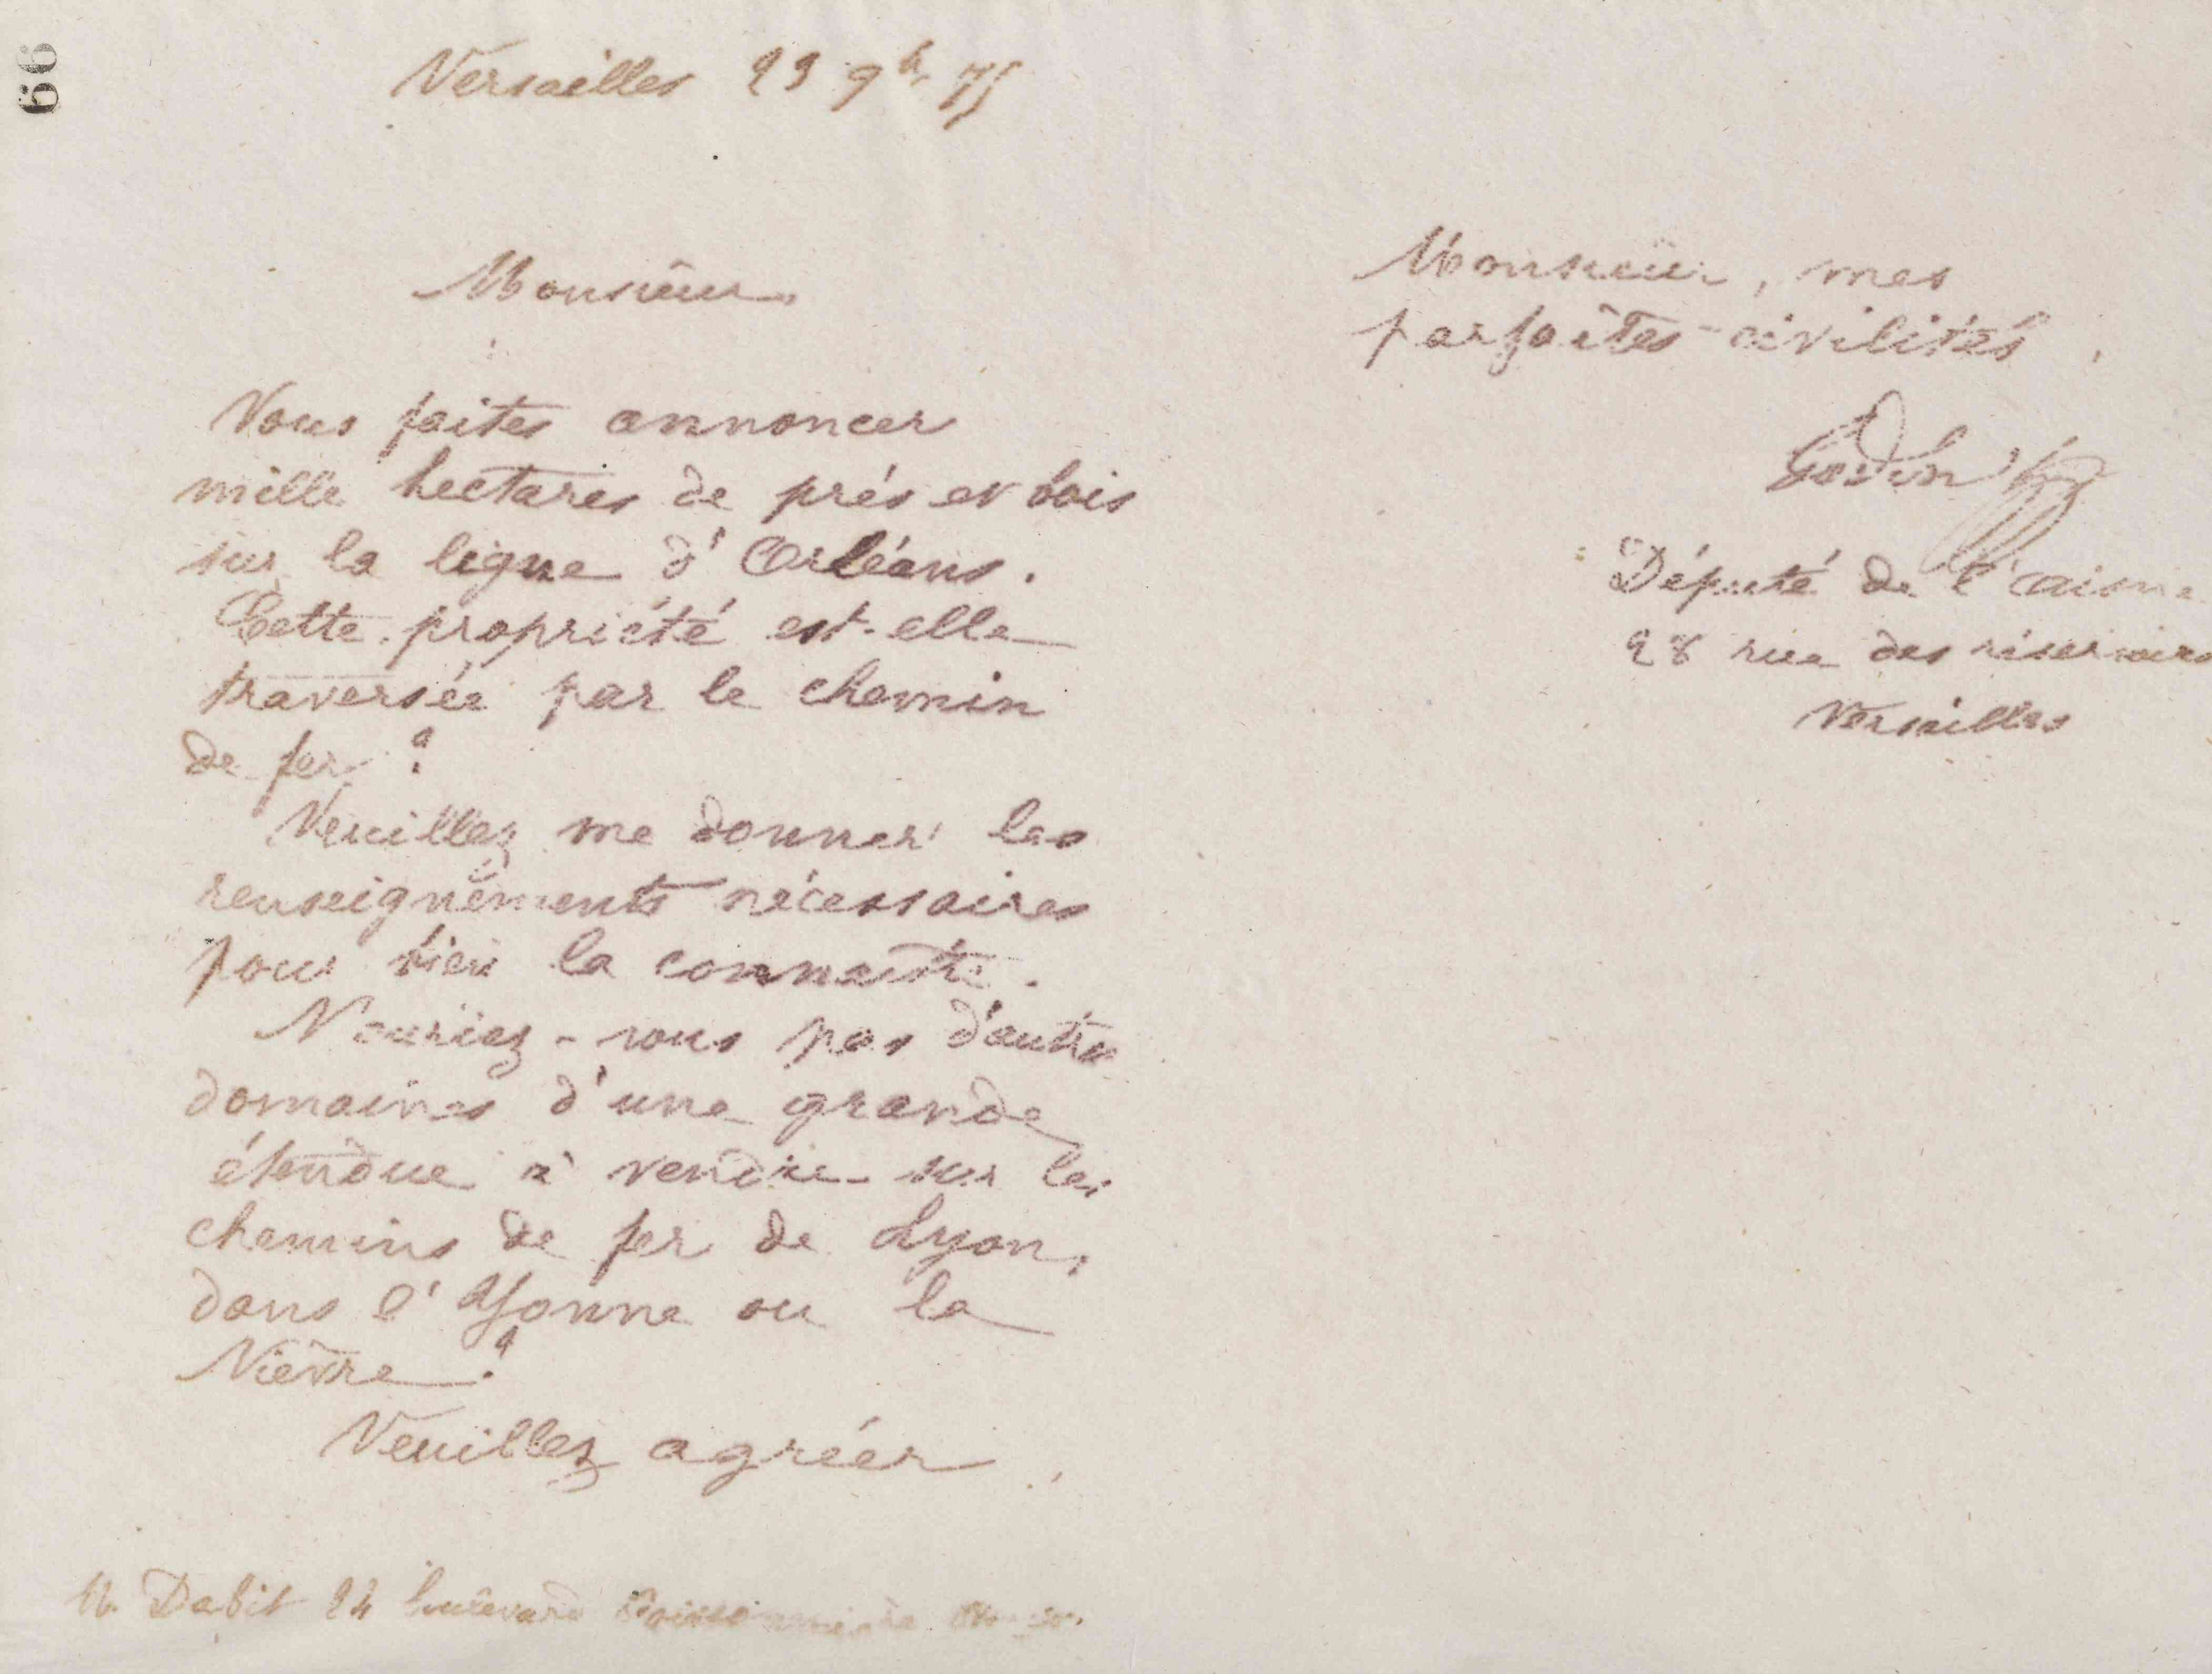 66
Versailles 29 9bre 75
Monsieur
Vous faites annoncer
mille hectares de prés et bois
sur la ligne d'Orléans.
Cette propriété est-elle
traversée par le chemin
de fer ?
Veuillez me donner les
renseignements nécessaires
pour bien la connaitre.
N'auriez-vous pas d'autres
domaines d'une grande
étendue à vendre sur les
chemins de fer de Lyon,
dans l'Yonne ou la
Nièvre ?
Veuillez agréer
M. Dabit 24 boulevard Poissonnière
Monsieur, mes
parfaites civilités.
Godin
Député de l'aisne
28 rue des réservoirs
Versailles